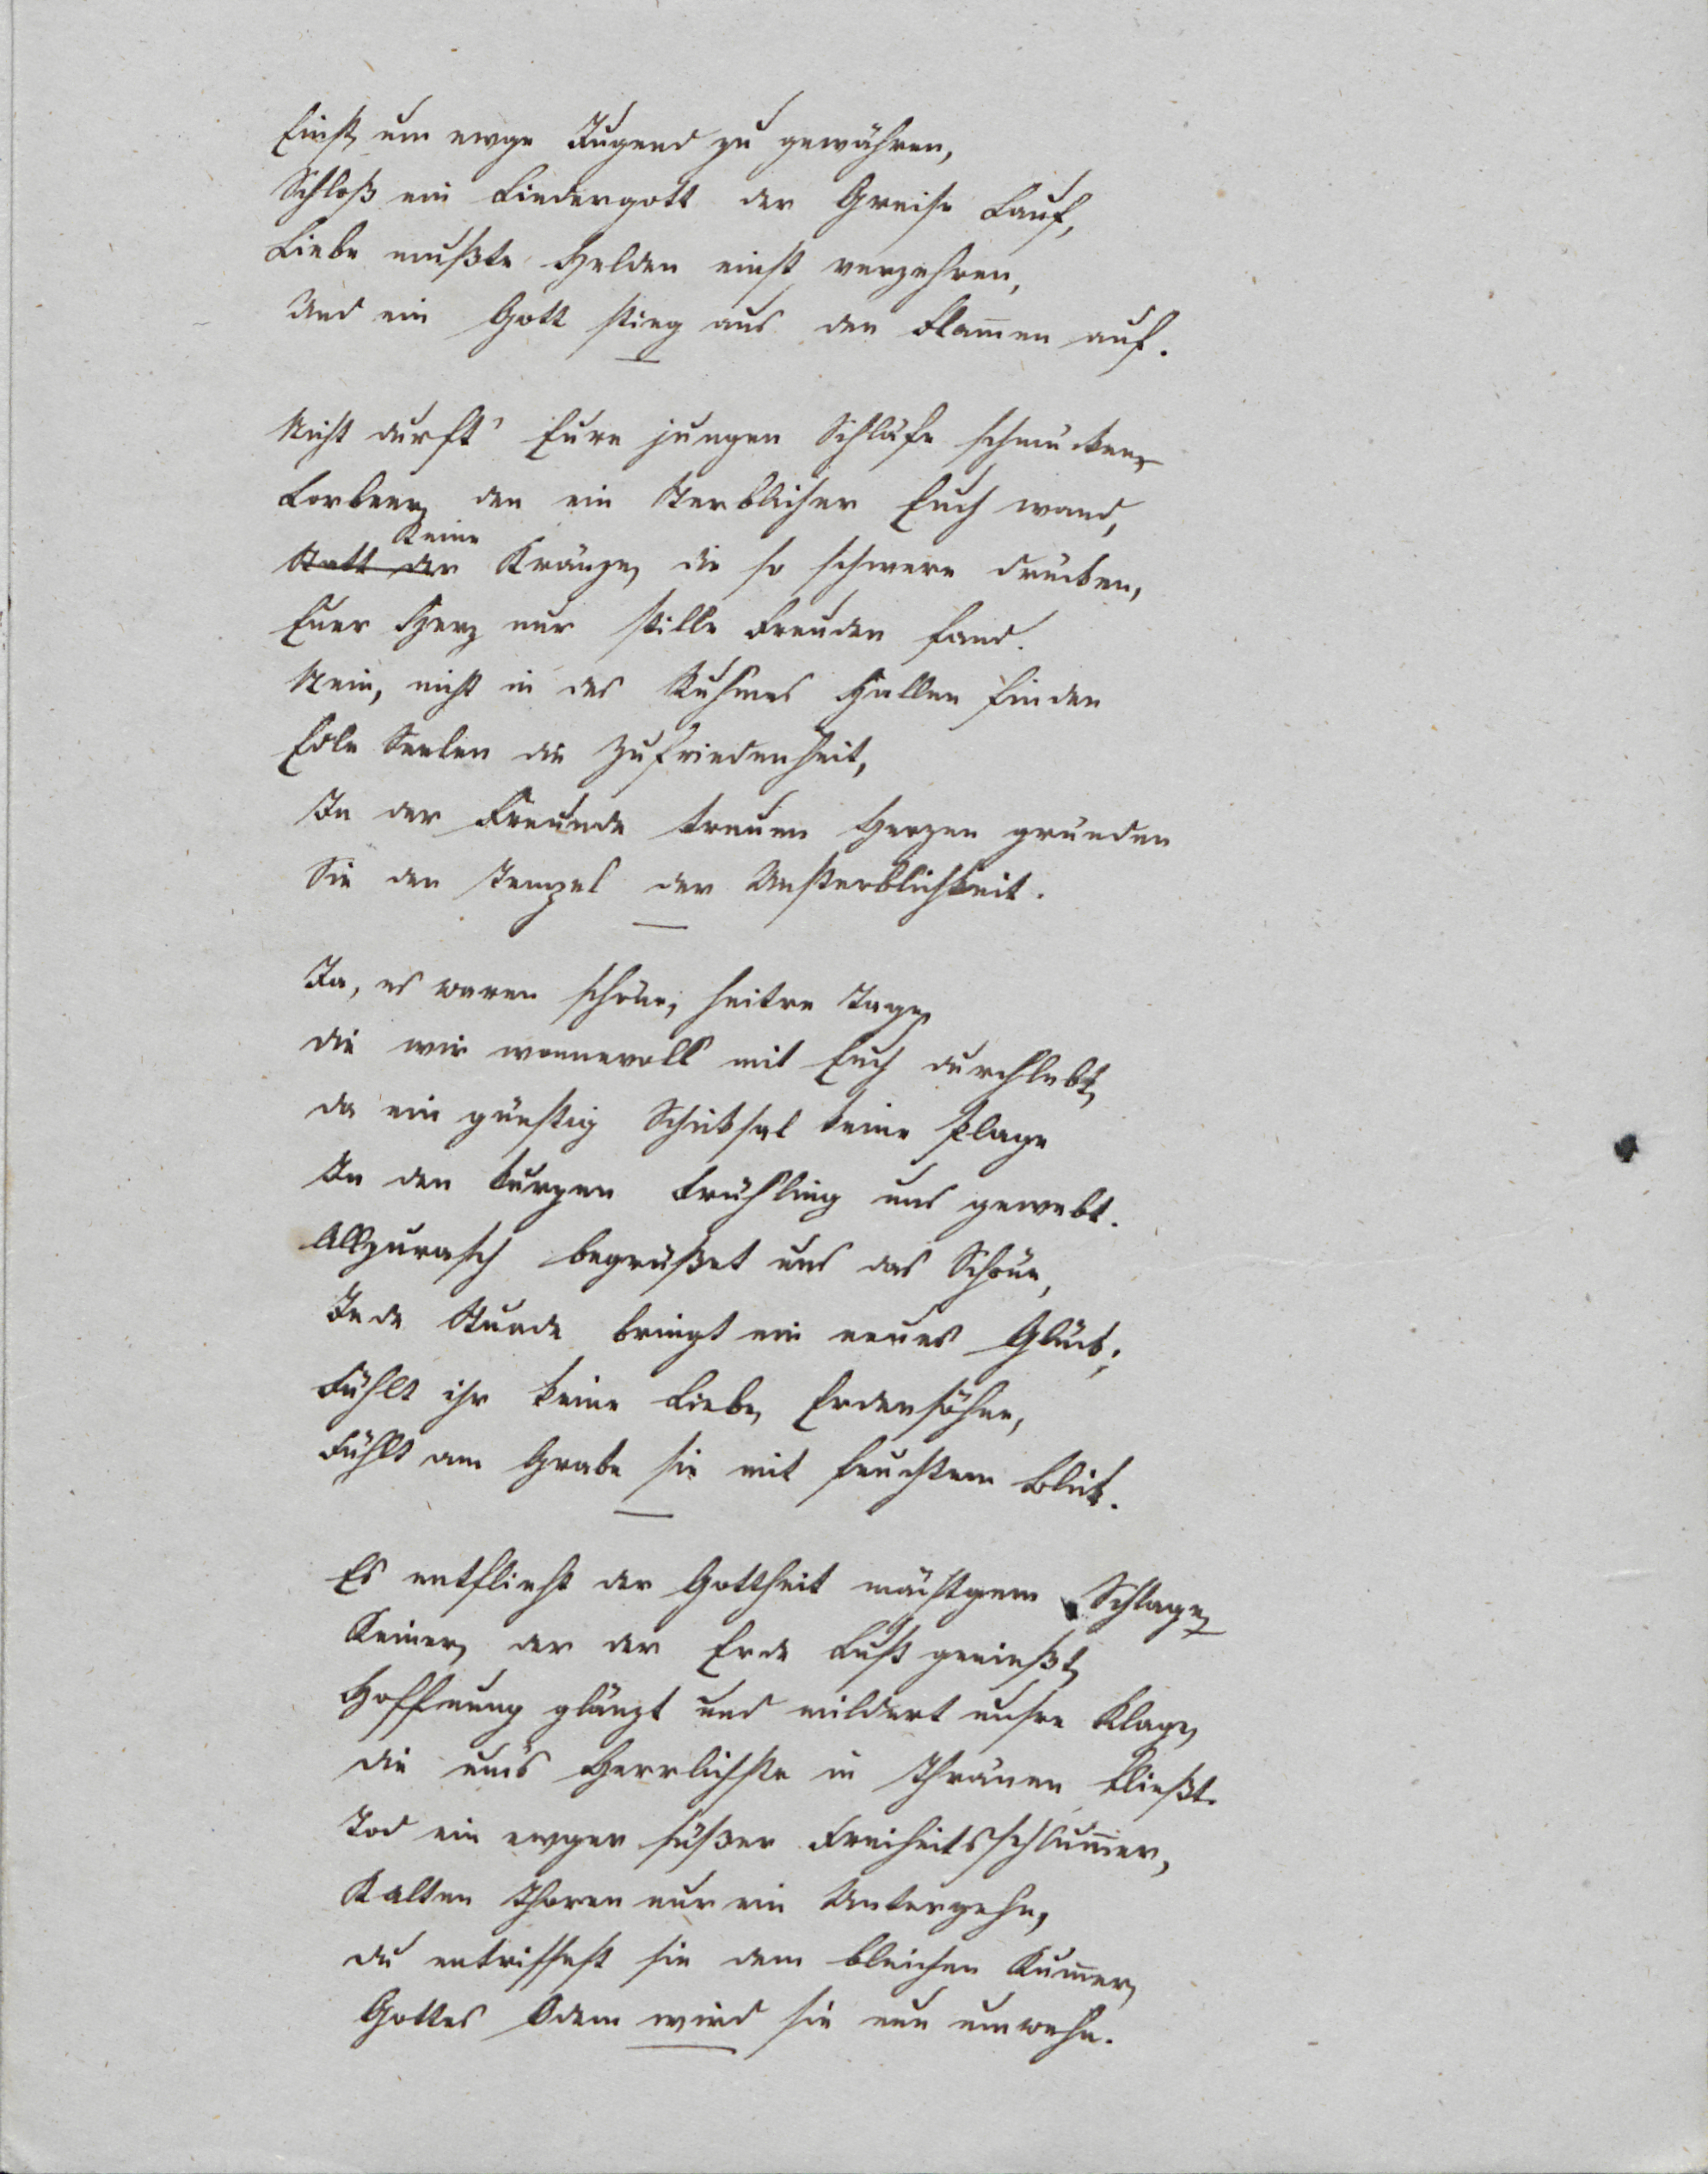 Einst, um ewge Jugend zu gewähren,
Schloß ein Liedergott der Greise Lauf,
Liebe mußte Helden einst verzehren,
Und ein Gott stieg aus den Flam̅en auf.
Nicht durft' Eure jungen Schläfe schmücken,
Lorbeer, den ein Sterblicher Euch wand,
Keine
Statt der Kränze, die so schwere drücken,
Euer Herz nur stille Freuden fand.
Nein, nicht in des Ruhmes Hallen finden
Edle Seelen die Zufriedenheit,
In der Freunde treuen Herzen gründen
Sie den Tempel der Unsterblichkeit.
Ja, es waren schöne, heitre Tage,
die wir wonnevoll mit Euch durchlebt,
da ein günstig Schicksal keine Plage
In den kurzen Frühling uns gewebt.
Allzurasch begrüßet uns das Schöne,
Jede Stunde bringt ein neues Glück;
Fühlt ihr keine Liebe, Erdensöhne,
Fühlt am Grabe sie mit feuchtem Blick.
Es entflieht der Gottheit mächtgem Schlage,
Keiner, der der Erde Lust genießt,
Hoffnung glänzt und mildert unsre Klage,
die um's Herrlichste in Thränen fließt.
Tod ein ewger süßer Freiheitsschlum̅er,
Kalten Thoren nur ein Untergehn,
du entrissest sie dem bleichen Kum̅er,
Gottes Odem wird sie nun umwehn.